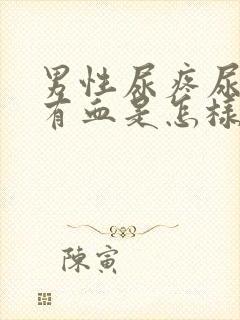 男性尿疼尿
有血是怎样
陳寅